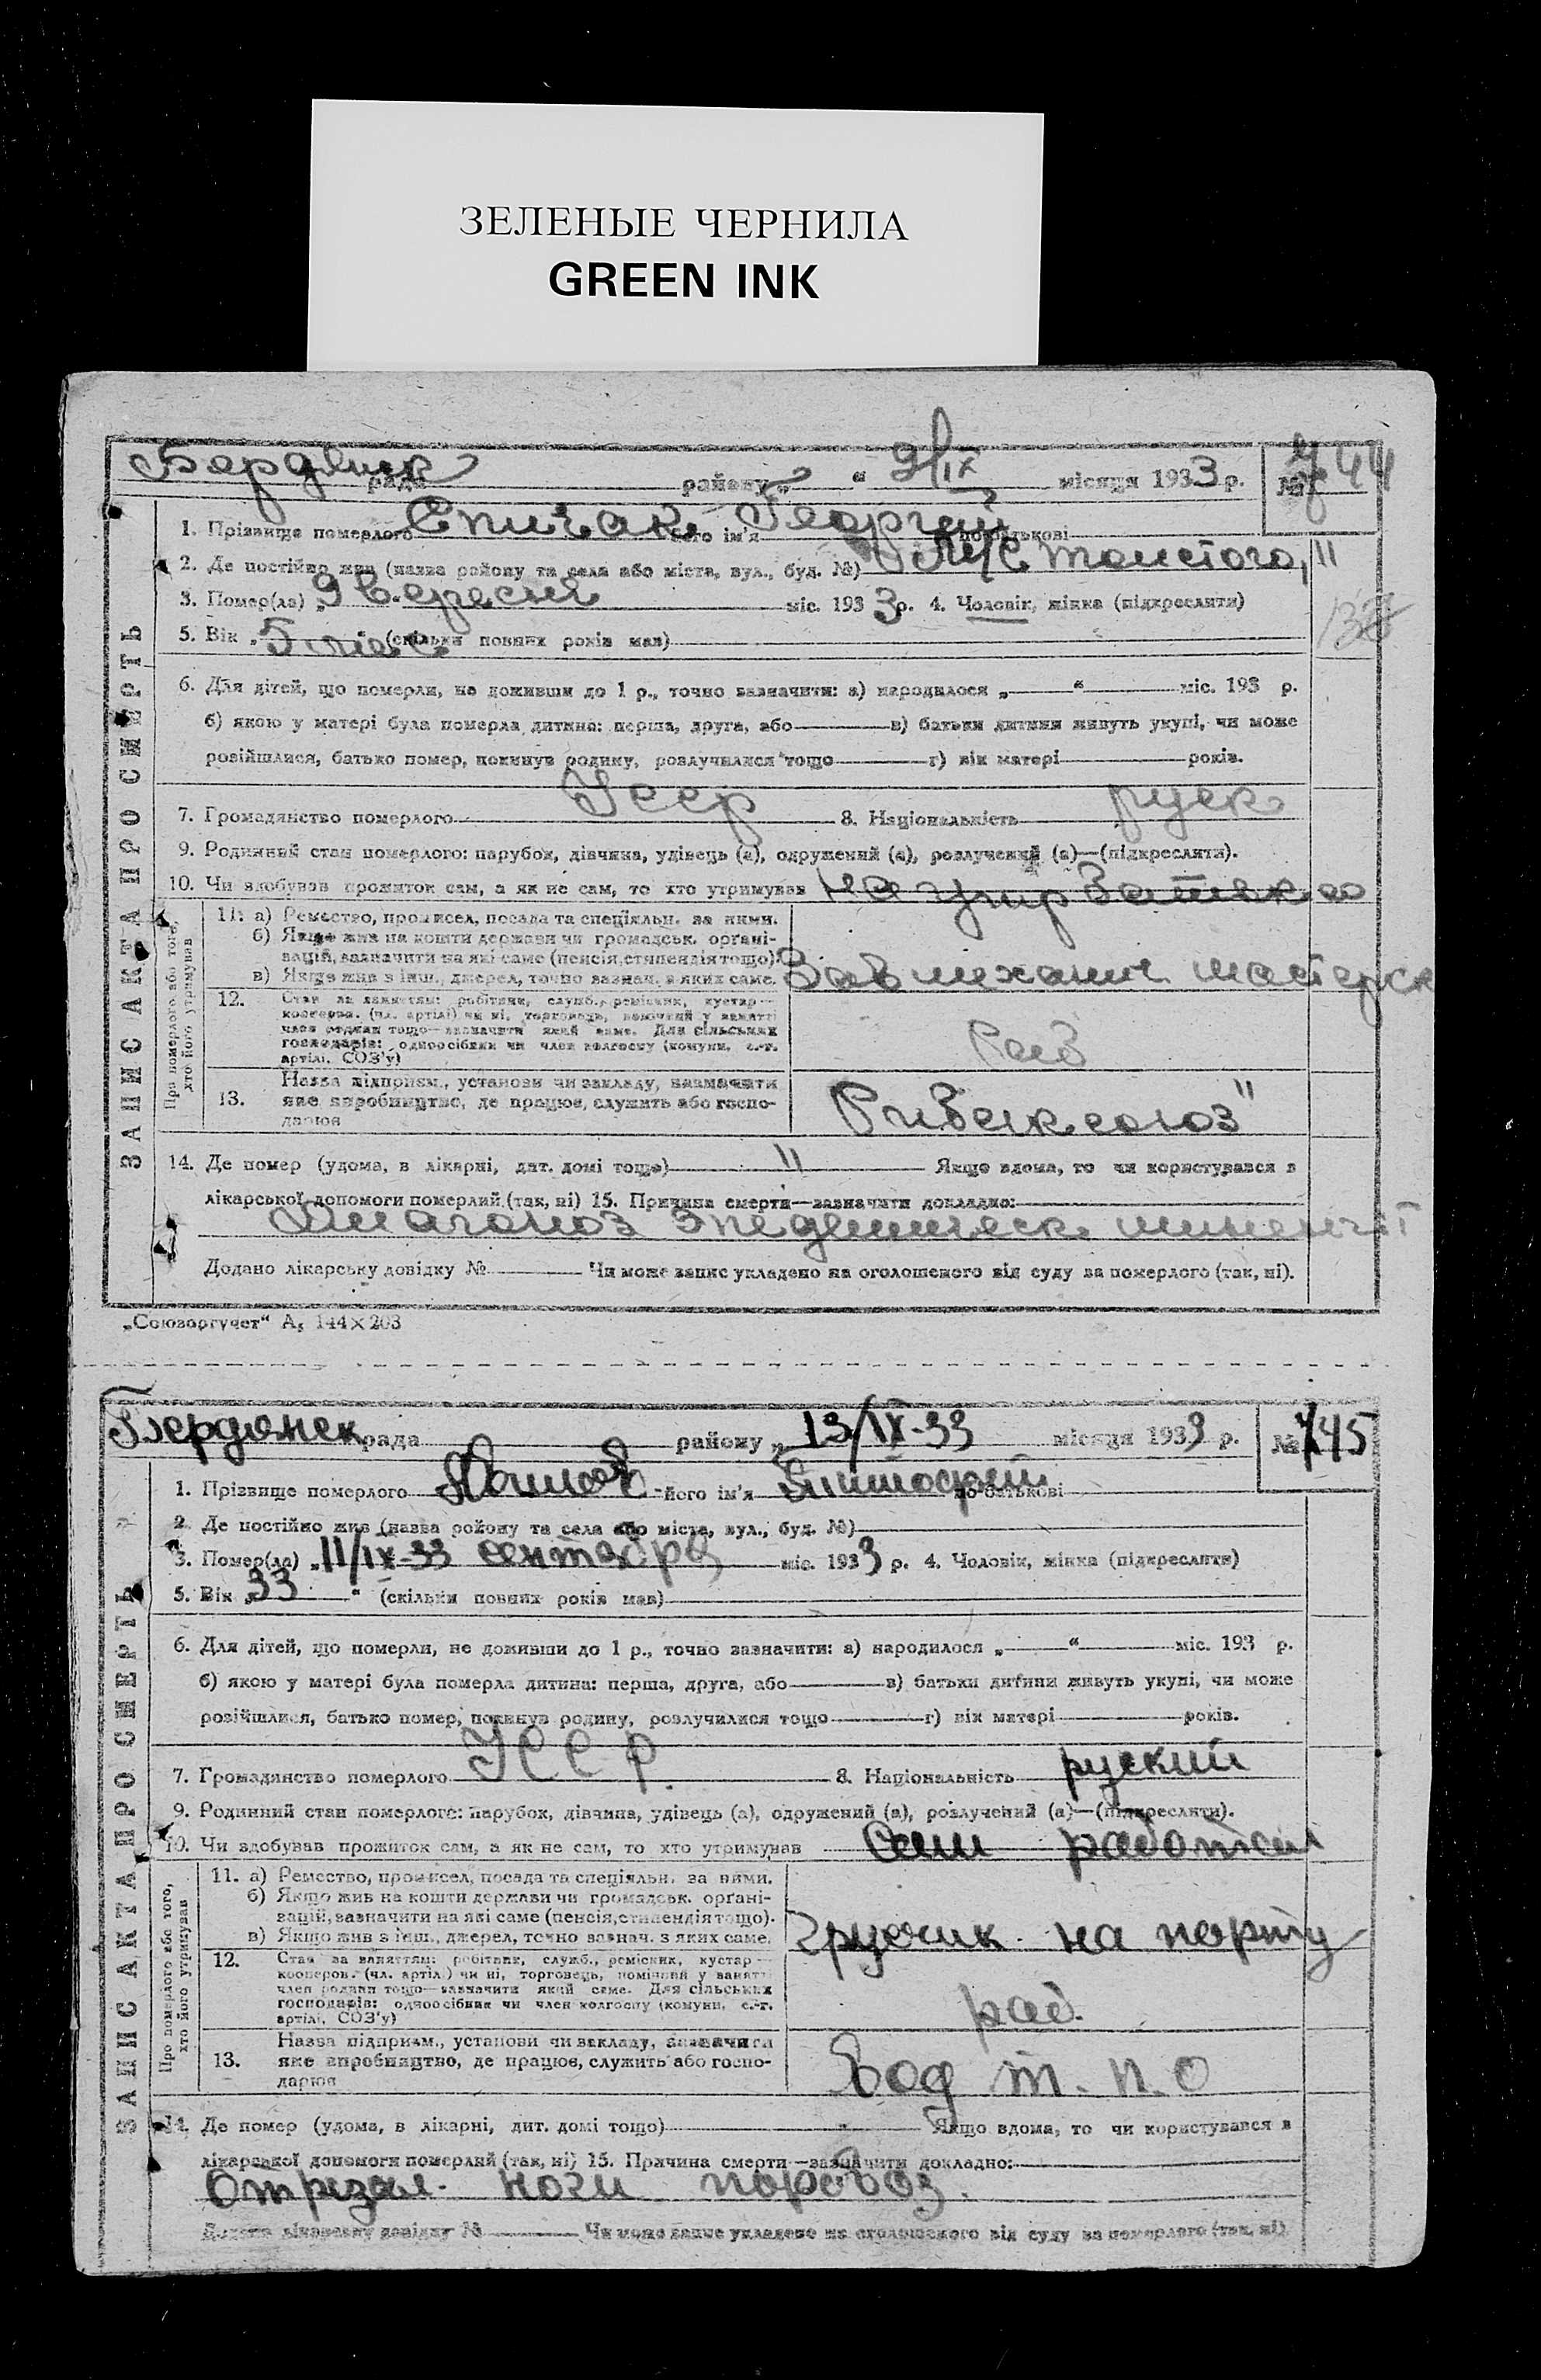 ЗЕЛЕНЫЕ ЧЕРНИЛА
GREEN INK
Бердянск рада району „ “ 9/IX місяця 1933 р. № 744
1. Прізвище померлого Спичак його ім'я Георгий по батькові
2. Де постійно жив (назва району та села або міста, вул., буд. №) Толстого, 11
3. Помер(ла) „9 вересня міс. 1933 р. 4. Чоловік, жінка (підкреслити)
138
5. Вік „5 мес“ (скільки повних років мав)
6. Для дітей, що померли, не доживши до 1 р., точно зазначити: а) народилося „ “ міс. 193 р.
б) якою у матері була померла дитина: перша, друга, або в) батьки дитини живуть укупі, чи може
розійшлися, батько помер, покинув родину, розлучилися тощо г) вік матері років.
7. Громадянство померлого Усср 8. Національність руск
9. Родинний стан померлого: парубок, дівчина, удівець (а), одружений (а), розлучений (а)—(підкреслити).
10. Чи здобував прожиток сам, а як не сам, то хто утримував на утр батька
ЗАПИС АКТА ПРО СМЕРТЬ
Про померлого або того, хто його утримував
11. а) Ремество, промисел, посада та спеціяльн. за ними.
б) Якщо жив на кошти держави чи громадськ. орґані-
зацій, зазначити на які саме (пенсія, стипендія тощо).
в) Якщо жив з інш., джерел, точно зазнач. з яких саме.
Зав механич мастерск
12. Стан за заняттям: робітник, служб., ремісник, кустар—
кооперов. (чл. артілі) чи ні, торговець, помічний у занятті
член родини тощо—зазначити який саме. Для сільських
господарів: одноосібник чи член колгоспу (комуни, с.-г.
артілі, СОЗ'у)
Раб
13. Назва підприєм., установи чи закладу, зазначити
яке виробництво, де працює, служить або госпо-
дарює
Рибаксоюз"
14. Де помер (удома, в лікарні, дит. домі тощо) " Якщо вдома, то чи користувався з
лікарської допомоги померлий (так, ні) 15. Причина смерти—зазначити докладно:
Додано лікарську довідку № Чи може запис укладено на оголошеного від суду за померлого (так, ні).
„Союзоргучет“ А₅ 144×203
Бердянск рада району „13/IX-33 місяця 1933 р. № 745
1. Прізвище померлого його ім'я по батькові
2. Де постійно жив (назва району та села або міста, вул., буд. №)
3. Помер(ла) „11/IX-33 сентября міс. 1933 р. 4. Чоловік, жінка (підкреслити)
5. Вік „33 “ (скільки повних років мав)
6. Для дітей, що померли, не доживши до 1 р., точно зазначити: а) народилося „ “ міс. 193 р.
б) якою у матері була померла дитина: перша, друга, або в) батьки дитини живуть укупі, чи може
розійшлися, батько помер, покинув родину, розлучилися тощо г) вік матері років.
7. Громадянство померлого Усср. 8. Національність руский
9. Родинний стан померлого: парубок, дівчина, удівець (а), одружений (а), розлучений (а)—(підкреслити).
10. Чи здобував прожиток сам, а як не сам, то хто утримував Сам работал
ЗАПИС АКТА ПРО СМЕРТЬ
Про померлого або того, хто його утримував
11. а) Ремество, промисел, посада та спеціяльн. за ними.
б) Якщо жив на кошти держави чи громадськ. орґані-
зацій, зазначити на які саме (пенсія, стипендія тощо).
в) Якщо жив з інш., джерел, точно зазнач. з яких саме.
грузчик на порту
12. Стан за заняттям: робітник, служб., ремісник, кустар—
кооперов. (чл. артілі) чи ні, торговець, помічний у занятті
член родини тощо—зазначити який саме. Для сільських
господарів: одноосібник чи член колгоспу (комуни, с.-г.
артілі, СОЗ'у)
раб.
13. Назва підприєм., установи чи закладу, зазначити
яке виробництво, де працює, служить або госпо-
дарює
Вод т. п. о
14. Де помер (удома, в лікарні, дит. домі тощо) Якщо вдома, то чи користувався з
лікарської допомоги померлий (так, ні) 15. Причина смерти—зазначити докладно:
Отрезал ноги паровоз.
Додано лікарську довідку № Чи може запис укладено на оголошеного від суду за померлого (так, ні)